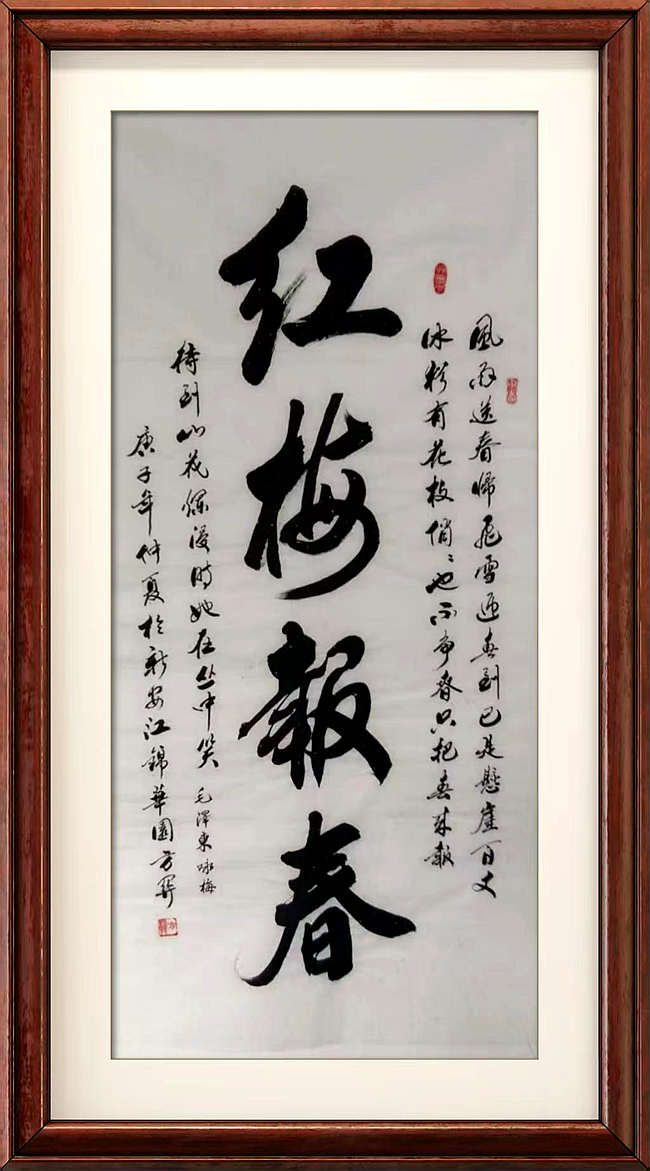 風雨送春歸飛雪迎春到已是懸崖百丈
冰猶有花枝俏〻也不爭春只把春來報
红梅報春
待到山花爛漫时她在丛中笑 毛澤東咏梅
庚子年仲夏於新安江錦華園方